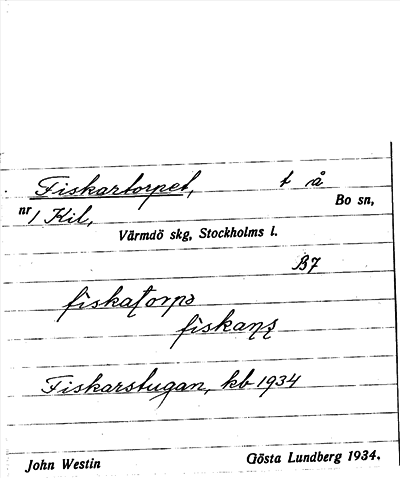 Fiskartorpet, t å
nr 1 Kil, Bo sn,
Värmdö skg, Stockholms l.
B7
fiskaʈorpə
fiskaɳʂ
Fiskarstugan, kb 1934
John Westin Gösta Lundberg 1934.